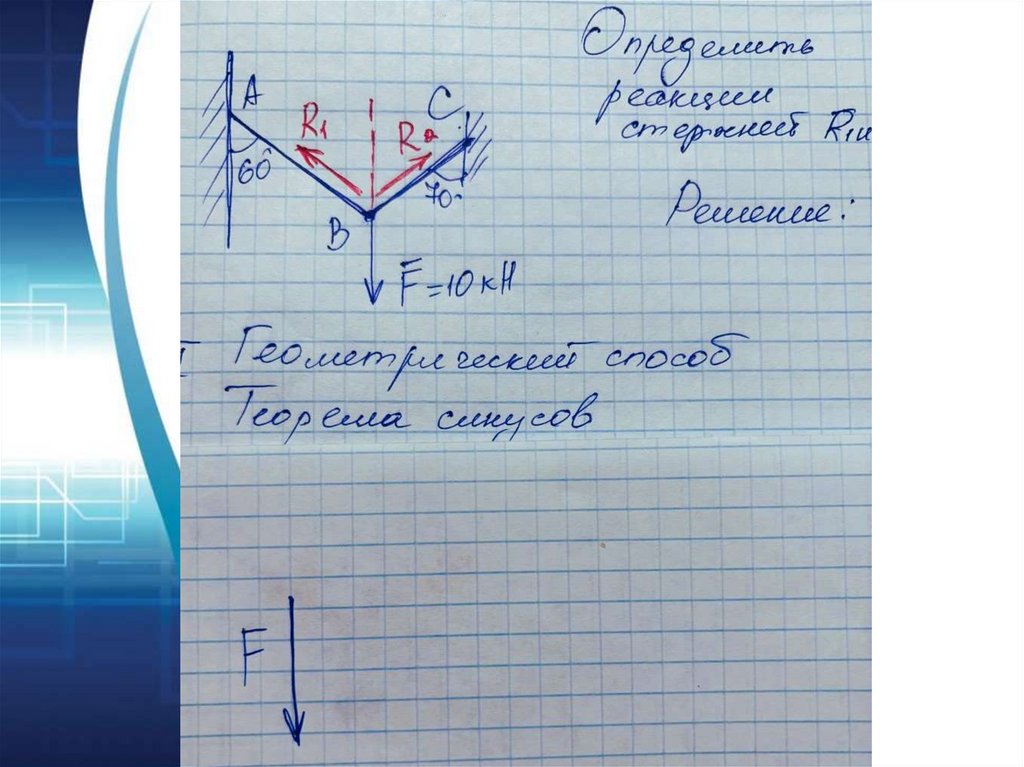 Определить
реакции
стержней R1 и
A
R1
C
R2
60°
70°
B
Решение:
F=10кН
I Геометрический способ
Теорема синусов
F